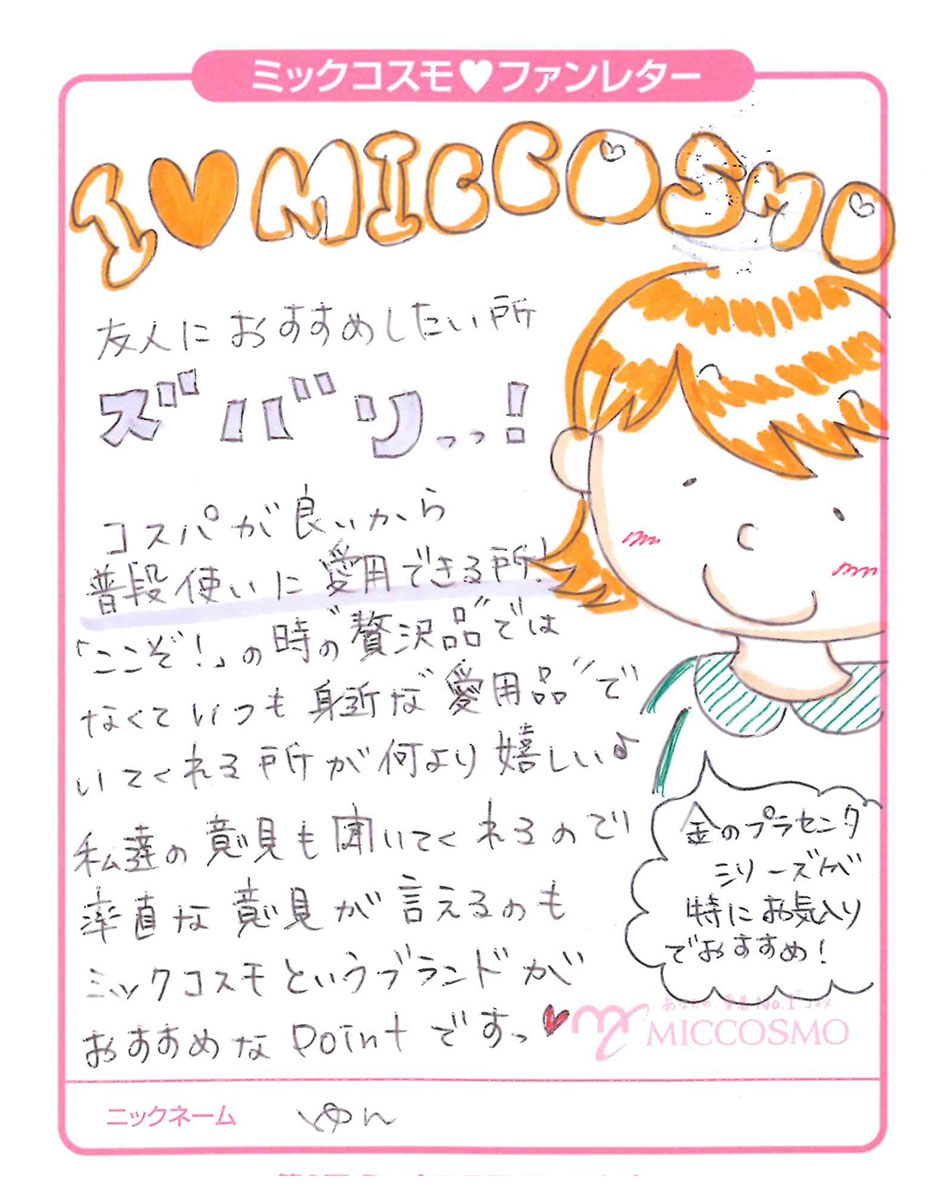 ミックコスモ♥ファンレター
I♥MICCOSMO
友人におすすめしたい所
ズバリっっ!
コスパが良いから
普段使いに愛用できる所!
「ここぞ!」の時の"贅沢品"では
なくていつも身近な"愛用品"で
いてくれる所が何より嬉しい♪
私達の意見も聞いてくれるので
率直な意見が言えるのも
ミックコスモというブランドが
おすすめなpointですっ♥
金のプラセンタ
シリーズが
特にお気入り
でおすすめ!
No.1
MICCOSMO
ニックネーム ゆん